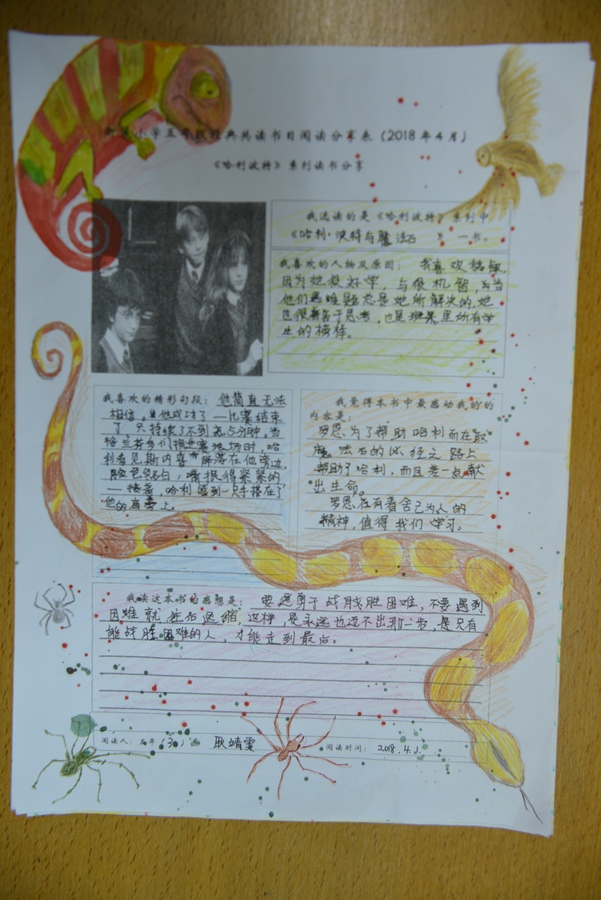 小学五年级经典共读书目阅读分享表（2018年4月）
《哈利波特》系列读书分享
我选读的是《哈利波特》系列中
《哈利·波特与魔法石 》一书。
我喜欢的人物及原因：我喜欢
因为她很好学，与很机智，每当
他们遇难题总是她所解决的，她
也很善于思考，也是班里所有学
生的榜样。
我喜欢的精彩句段：他简直无法
相信，成功了——比赛结束
了，只持续了不到5分钟。当
格兰芬多们拥进赛场时，哈
利看见斯内普降落在他旁边，
脸色煞白，嘴抿得紧紧的
——接着，哈利感到一只手搭在了
他的肩膀上。
我觉得本书中最感动我的的
内容是：
罗恩为了帮助哈利而在取
魔法石的必经之路上
帮助了哈利，而且差一点献
出生命。
罗恩有着舍己为人的
精神，值得我们学习。
我读这本书的感想是：要勇于战胜困难，不要遇到
困难就往后退缩，这样，是永远也迈不出那一步，是只有
能战胜困难的人，才能走到最后。
阅读人：五年（3）
耿靖雯
阅读时间：2018.4.1